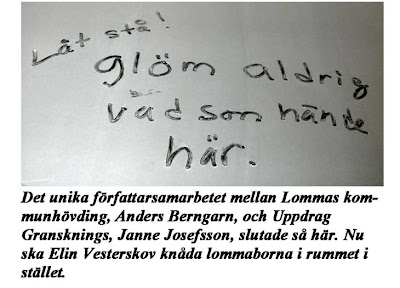 Låt stå!
glöm aldrig
vad som hände
här.
Det unika författarsamarbetet mellan Lommas kom-
munhövding, Anders Berngarn, och Uppdrag
Gransknings, Janne Josefsson, slutade så här. Nu
ska Elin Vesterskov knåda lommaborna i rummet i
stället.